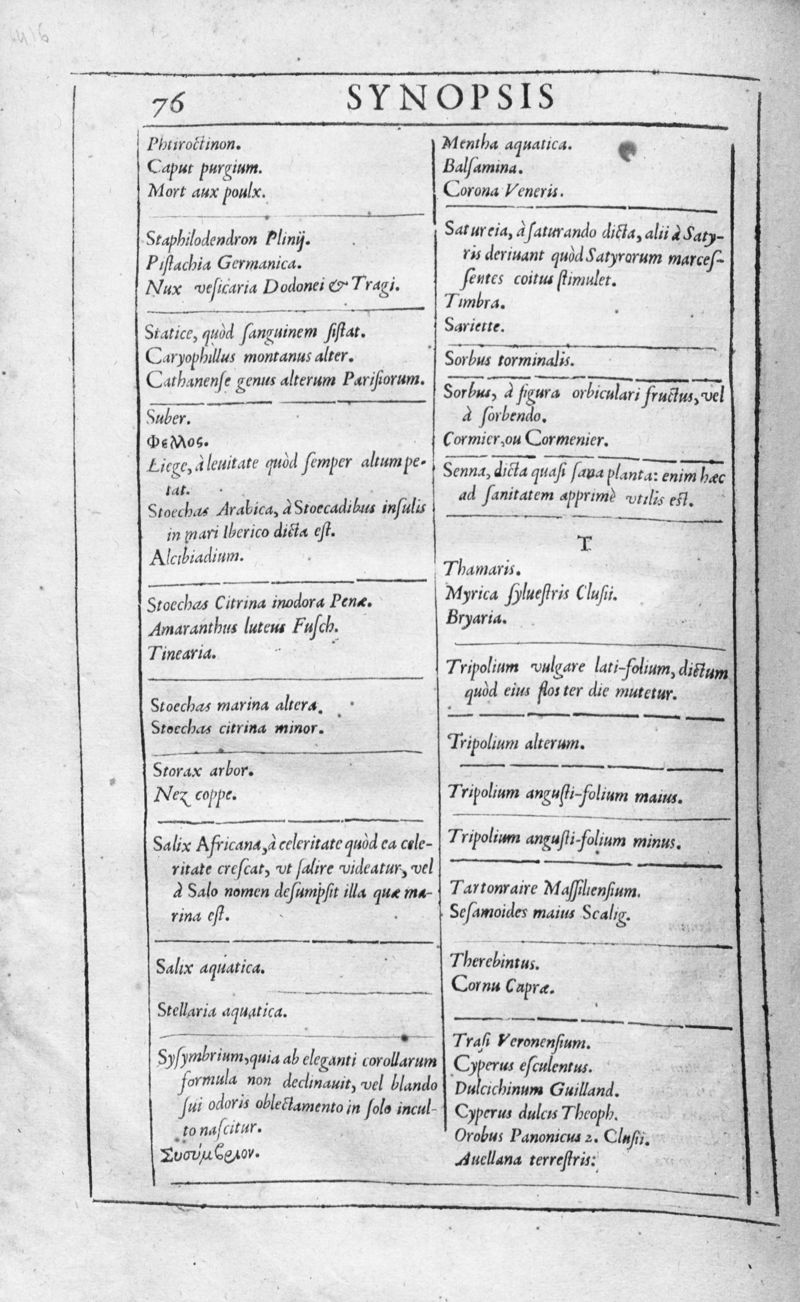 76
SYNOPSIS
Phtiroctinon.
Caput purgium.
Mort aux poulx.
Staphilodendron Plinij.
Pistachia Germanica.
Nux vesicaria Dodonei & Tragi.
Statice, quòd sanguinem sistat.
Caryophillus montanus alter.
Cathanense genus alterum Parisiorum.
Suber.
Φελλος.
Liege, à leuitate quòd semper altum pe-
tat.
Stoechas Arabica, à Stoecadibus insulis
in mari Iberico dicta est.
Alcibiadium.
Stoechas Citrina inodora Penæ.
Amaranthus luteus Fusch.
Tinearia.
Stoechas marina altera.
Stoechas citrina minor.
Storax arbor.
Nez coppe.
Salix Africana, à celeritate quòd ea cele-
ritate crescat, vt salire videatur, vel
à Salo nomen desumpsit illa quæ ma-
rina est.
Salix aquatica.
Stellaria aquatica.
Sysymbrium, quia ab eleganti corollarum
formula non declinauit, vel blando
sui odoris oblectamento in solo incul-
to nascitur.
Συσύμβριον.
Mentha aquatica.
Balsamina.
Corona Veneris.
Satureia, à saturando dicta, alii à Saty-
ris deriuant quòd Satyrorum marces-
sentes coitus stimulet.
Timbra.
Sariette.
Sorbus torminalis.
Sorbus, à figura orbiculari fructus, vel
à sorbendo.
Cormier, ou Cormenier.
Senna, dicta quasi sana planta: enim hæc
ad sanitatem apprimè vtilis est.
T
Thamaris.
Myrica syluestris Clusii.
Bryaria.
Tripolium vulgare lati-folium, dictum
quòd eius flos ter die mutetur.
Tripolium alterum.
Tripolium angusti-folium maius.
Tripolium angusti-folium minus.
Tartonraire Massiliensium.
Sesamoides maius Scalig.
Therebintus.
Cornu Capræ.
Trasi Veronensium.
Cyperus esculentus.
Dulcichinum Guilland.
Cyperus dulcis Theoph.
Orobus Panonicus 2. Clusii.
Auellana terrestris: